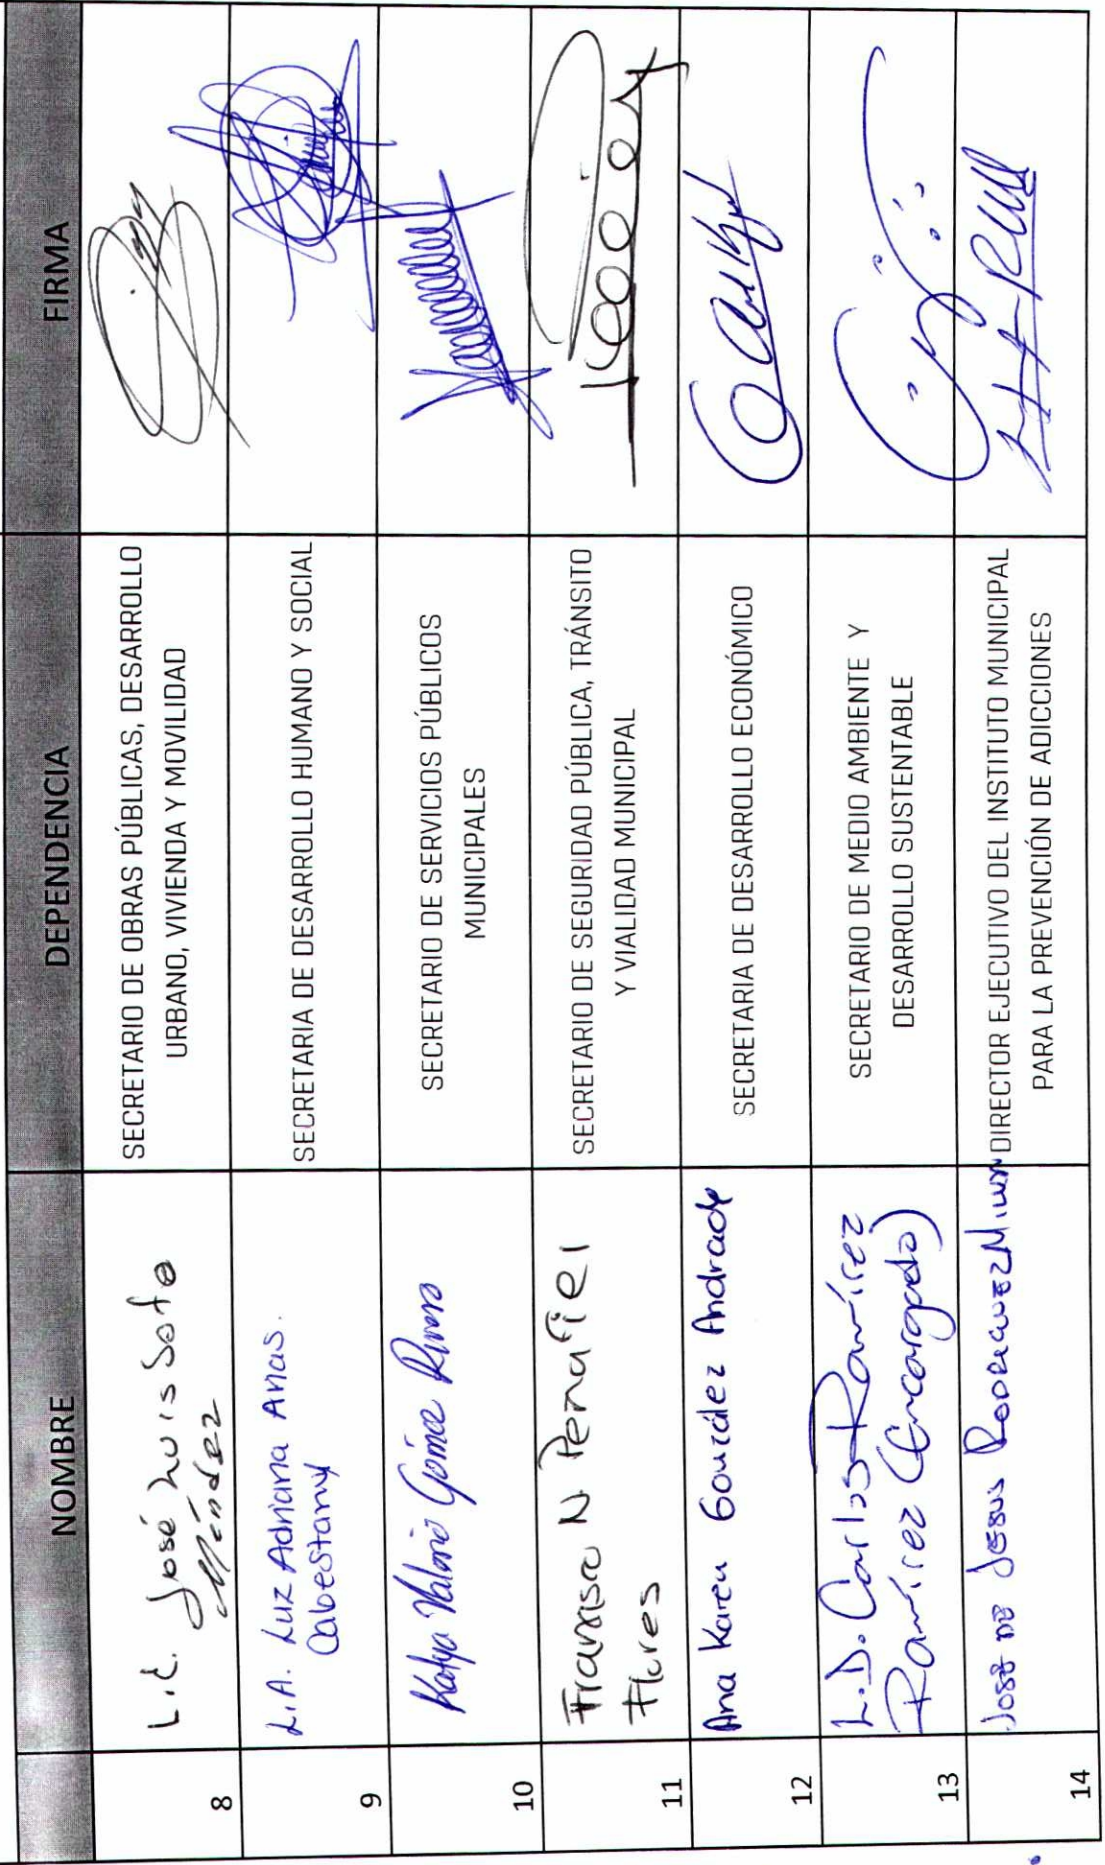 NOMBRE DEPENDENCIA FIRMA
8 L.C. José Luis Soto
Méndez
SECRETARIO DE OBRAS PÚBLICAS, DESARROLLO
URBANO, VIVIENDA Y MOVILIDAD
9 L.A. Luz Adriana Arias.
Cabestany
SECRETARIA DE DESARROLLO HUMANO Y SOCIAL
10 Katya Valeria Gómez Rivera
SECRETARIO DE SERVICIOS PÚBLICOS
MUNICIPALES
11 Francisco N. Penafiel
Flores
SECRETARIO DE SEGURIDAD PÚBLICA, TRÁNSITO
Y VIALIDAD MUNICIPAL
12 Ana Karen González Andrade
SECRETARIA DE DESARROLLO ECONÓMICO
13 L.D. Carlos Ramírez
Ramírez (Encargado)
SECRETARIO DE MEDIO AMBIENTE Y
DESARROLLO SUSTENTABLE
14 JOSE DE JESUS RODRIGUEZ
DIRECTOR EJECUTIVO DEL INSTITUTO MUNICIPAL
PARA LA PREVENCIÓN DE ADICCIONES